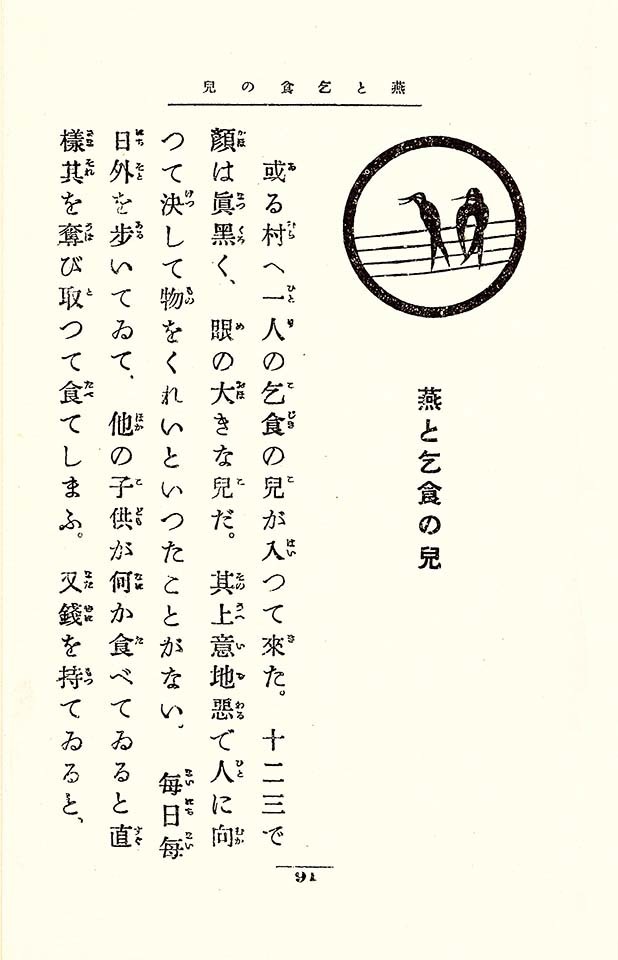 燕と乞食の兒
燕と乞食の兒
或る村へ一人の乞食の兒が入つて來た。十二三で
顏は眞黑く、眼の大きな兒だ。其上意地惡で人に向
つて決して物をくれいといつたことがない。每日每
日外を步いてゐて、他の子供が何か食べてゐると直
樣其を奪び取つて食てしまふ。又錢を持てゐると、
91